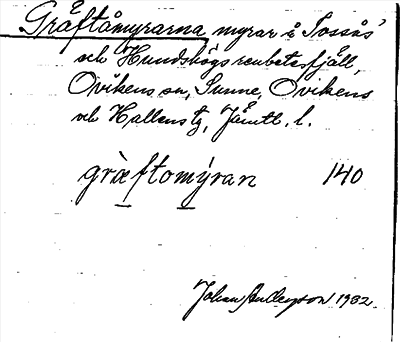 Gräftåmyrarna myrar å Tossås'
och Hundshögs renbetesfjäll,
Ovikens sn, Sunne, Ovikens
och Hallens tg, Jämtl. l.
græftomýran 140
Johan Andersson 1932